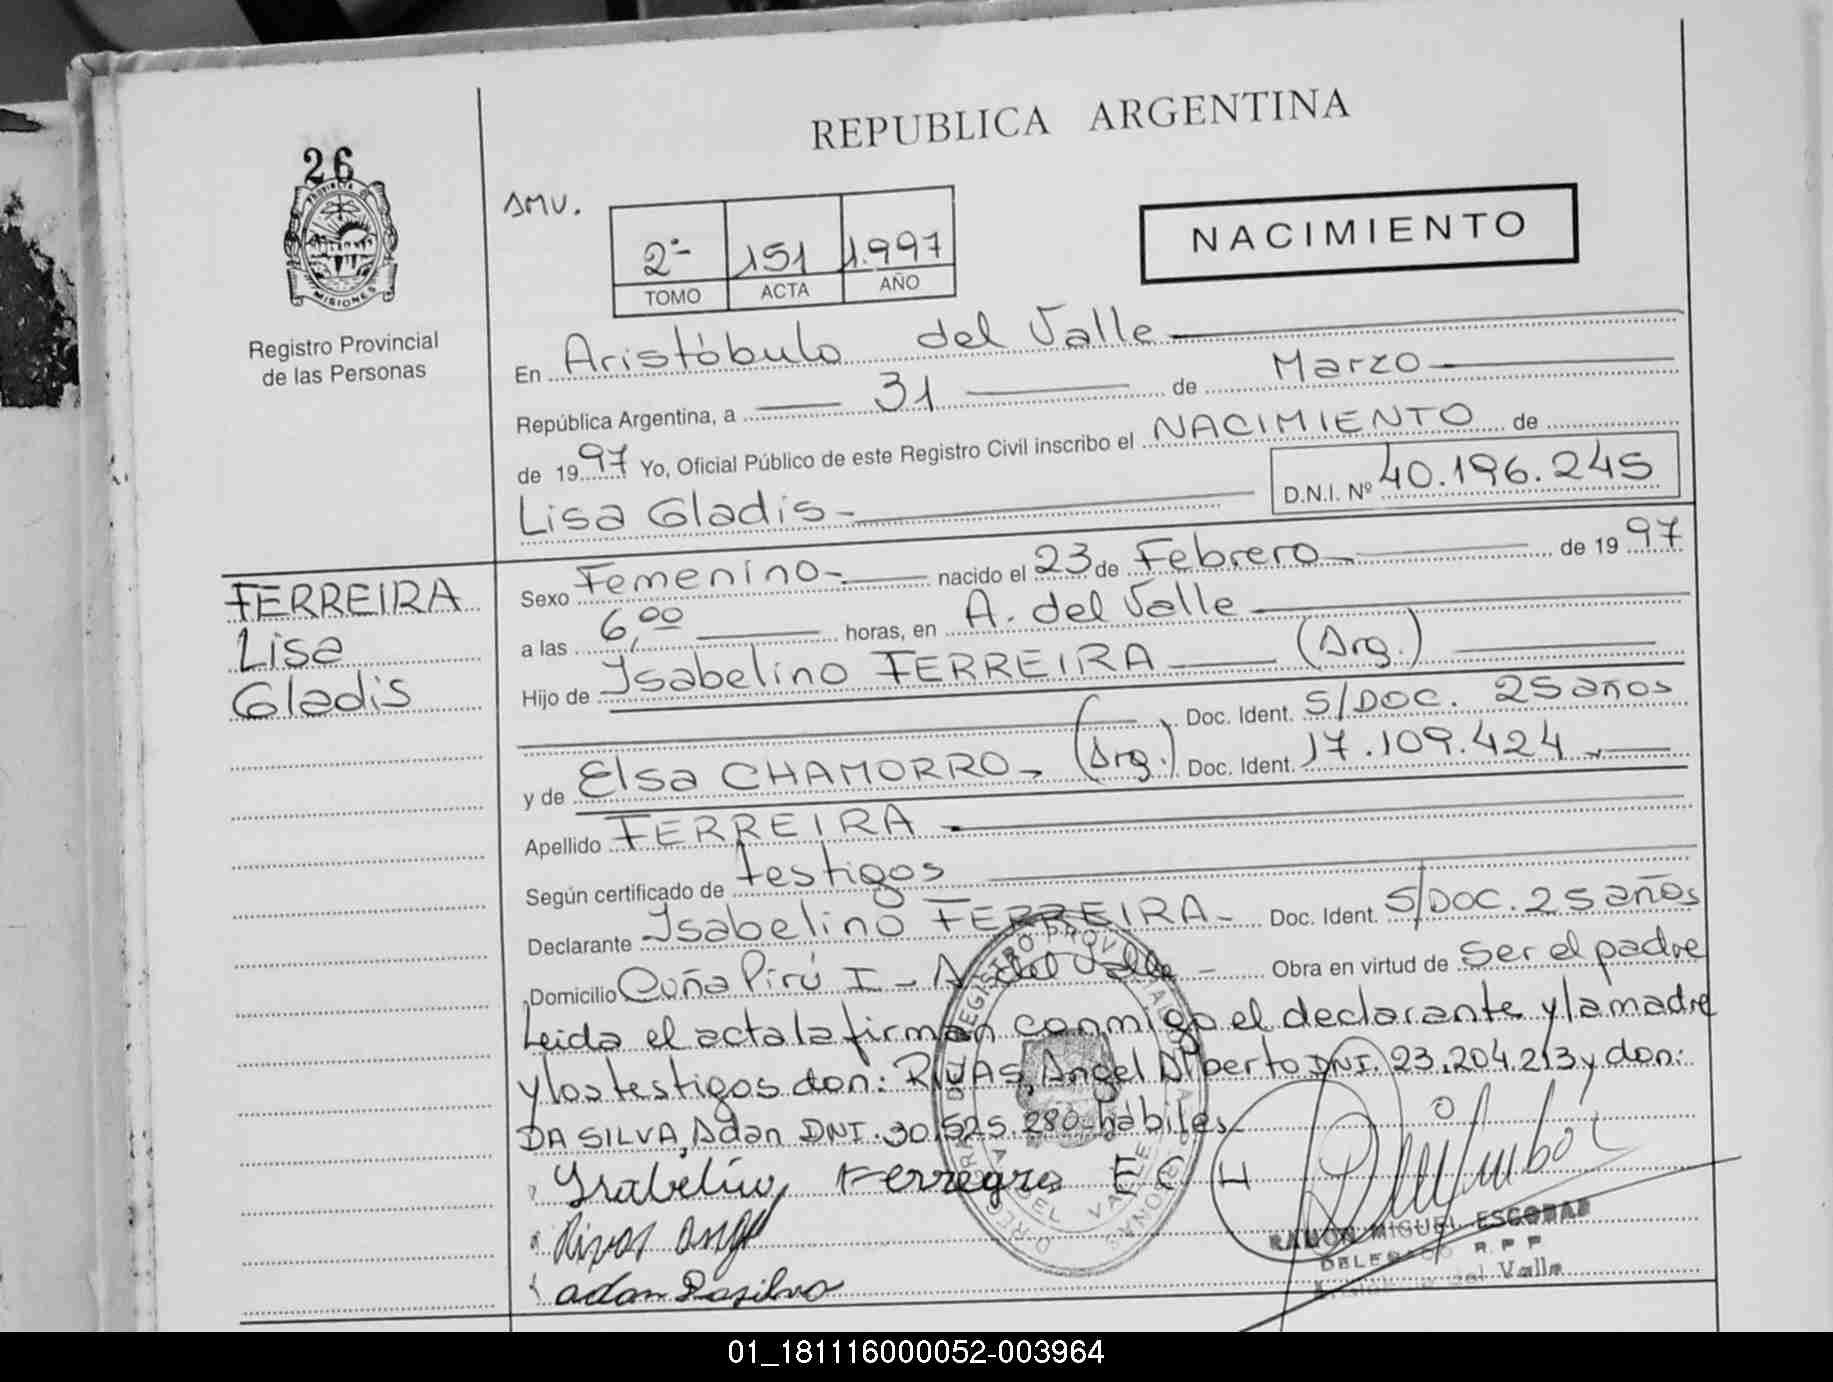 REPUBLICA ARGENTINA
26
PROVINCIA DE
MISIONES
Registro Provincial
de las Personas
SMV.
2ª 151 1.997
TOMO ACTA AÑO
NACIMIENTO
En Aristóbulo del Valle
República Argentina, a 31 de Marzo
de 1997 Yo, Oficial Público de este Registro Civil inscribo el NACIMIENTO de
Lisa Gladis- D.N.I. Nº 40.196.245
FERREIRA
Lisa
Gladis
Sexo Femenino- nacido el 23 de Febrero- de 1997
a las 6,00 horas, en A. del Valle
Hijo de Ysabelino FERREIRA (Arg.)
Doc. Ident. S/DOC. 25 años
y de Elsa CHAMORRO- (Arg.) Doc. Ident. 17.109.424.-
Apellido FERREIRA
Según certificado de testigos
Declarante Ysabelino FERREIRA- Doc. Ident. S/DOC. 25 años
Domicilio Cuña Pirú I - A. del Valle - Obra en virtud de ser el padre
Leida el acta la firman conmigo el declarante y la madre
y los testigos don: RIVAS, Angel Alberto DNI. 23.204.213 y don:
DA SILVA, Adan DNI. 30.525.280-hábiles-
Ysabelino Ferregra E C H
Rivas Angel
adan Dasilva
REGISTRO PROVINCIAL DE LAS PERSONAS
DEL VALLE
RAMON MIGUEL ESCOBAR
DELEGADO R.P.P.
Aristóbulo del Valle
01_181116000052-003964